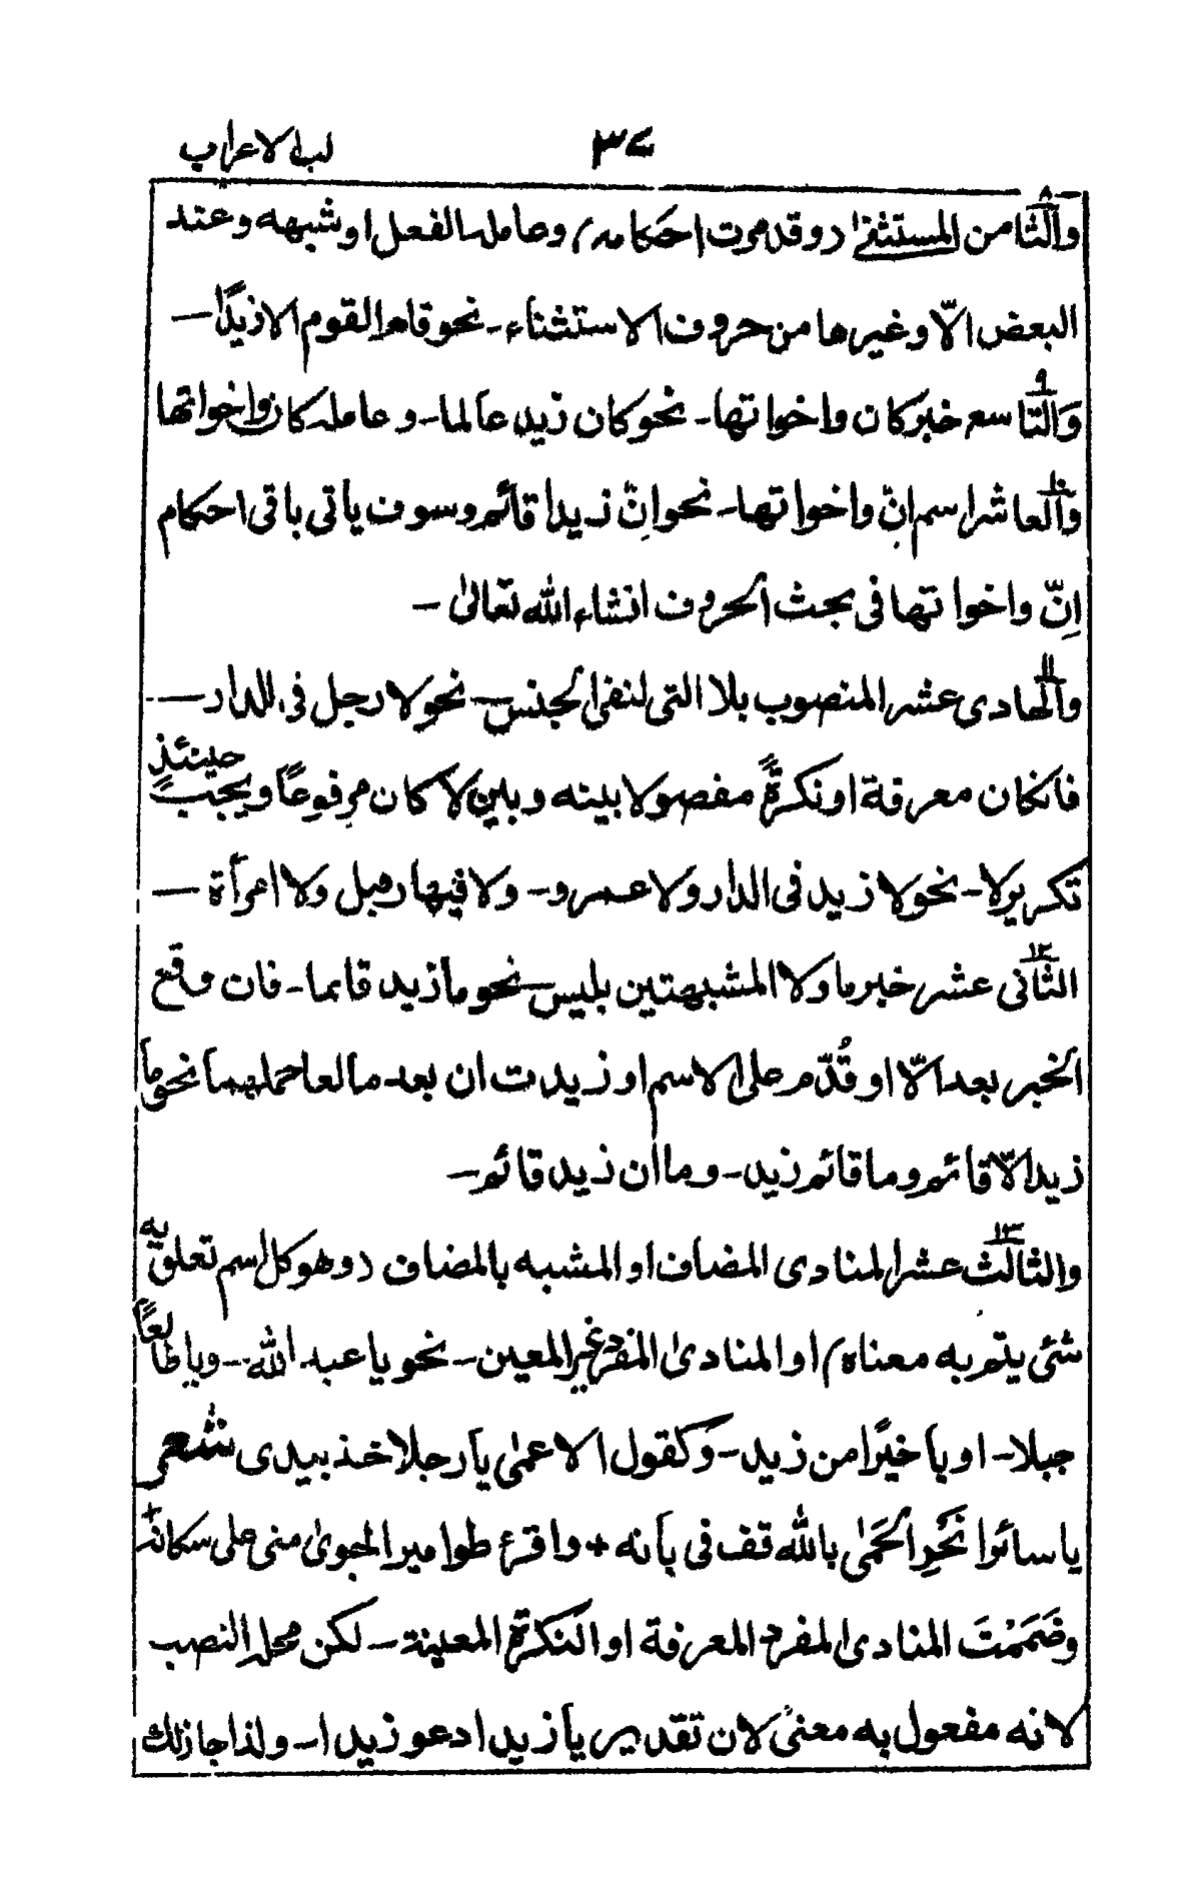 ٣٧ لب الاعراب
والثامن المستثنىٰ (وقد مرت احكامه) وعامله الفعل او شبهه وعند
البعض الّا وغيرها من حروف الاستثناء- نحو قام القوم الا زيدًا—
وَالتاسع خبر كان واخواتها- نحو كان زيد عالما- وعامله كان واخواتها
والعاشر اسم انّ واخواتها- نحو اِنّ زيدا قائم وسوف ياتى باقى احكام
اِنّ واخواتها فى بحث الحروف انشاء الله تعالىٰ—
والحادى عشر المنصوب بلا التى لنفى الجنس— نحو لا رجل فى الدار—
فانكان معرفة او نكرةً مفصولا بينه وبين لا كان مرفوعًا ويجب حينئذٍ
تكرير لا- نحو لا زيد فى الدار ولا عمرو- ولا فيها رجل ولا امرأة—
الثانى عشر خبر ما ولا المشبهتين بليس- نحو ما زيد قايما- فان وقع
الخبر بعد الّا او قُدّم على الاسم او زيدت ان بعد ما لعا حملهما نحو ما
زيد الّا قائم وما قائم زيد- وما ان زيد قائم—
والثالث عشر المنادى المضاف او المشبه بالمضاف (وهو كل اسم تعلق به
شئى يتم به معناه) او المنادىٰ المفرد غير المعين- نحو يا عبد الله- ويا طالعًا
جبلا- او يا خيرًا من زيد- وكقول الاعمىٰ يا رجلا خذ بيدى شعر
يا سائرا نَحْو الحَمىٰ بالله قف فى بانه + واقرء طوامير الجوىٰ منى على سكانه
وضَمَمْتَ المنادىٰ المفرد المعرفة او النكرة المعينة- لكن محله النصب
لانه مفعول به معنىً لان تقدير يا زيد ادعو زيدا- ولذا جاز لك